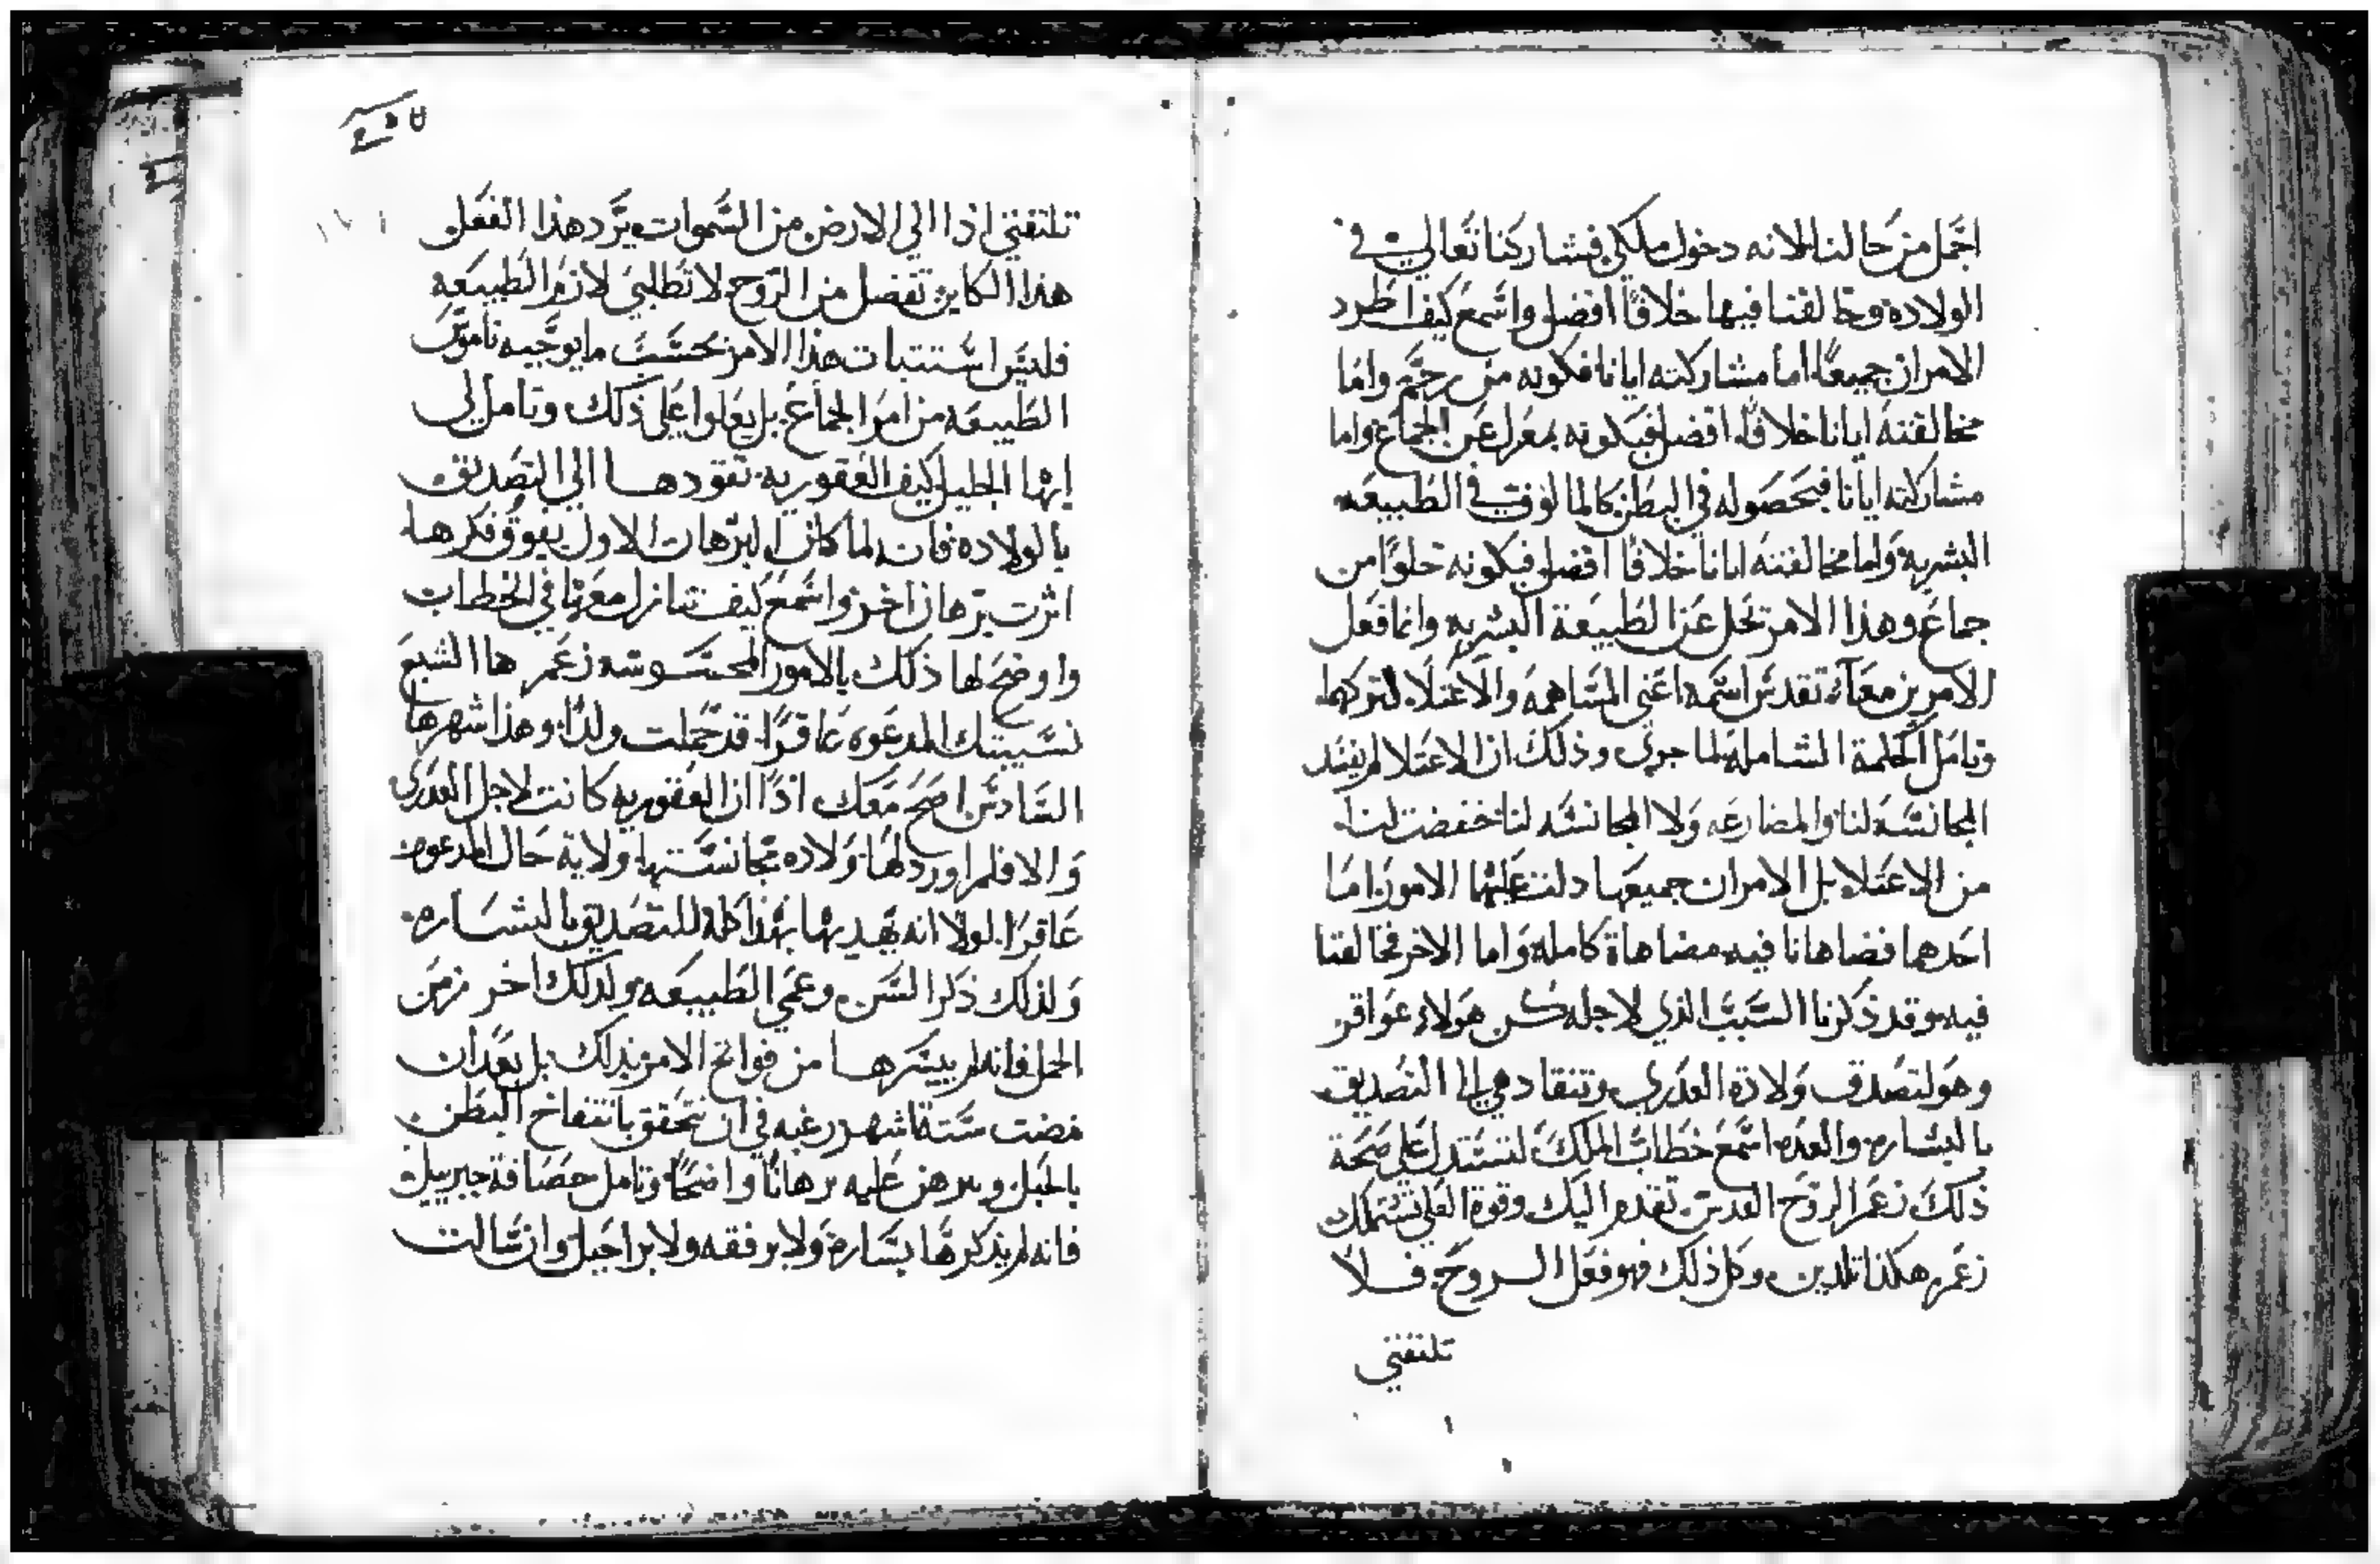 اجمل من حالنا لانه دخول ملكي فشاركنا تعالي في
الولاده وخالفنا فيها خلافًا افضل واسمع كيف اطرد
الامران جميعًا اما مشاركته ايانا فكونه من رحم واما
مخالفته ايانا خلافًا افضل فبكونه بمعزل عن الجماع واما
مشاركته ايانا فبحصوله في البطن كالمالوف في الطبيعه
البشريه واما مخالفته ايانا خلافًا افضل فبكونه خلوًا من
جماع وهذا الامر تجل عن الطبيعة البشريه وانما فعل
الامرين معًا تقدس اسمه اعني المساهمه والاعتلا
وتامل الحكمة الشامله لما جري وذلك ان الاعتلا لم يفسد
المجانسة لنا والمضارعه ولا المجانسه لنا خفضت لنا
من الاعتلا بل الامران جميعها دلت عليهما الامور اما
احدهما فضاهانا فيه مضاهاة كامله واما الاخر فخالفنا
فيه وقد ذكرنا السبب الذي لاجله كن هولاء عواقر
وهو لتصدق ولادة العذري وتنقاد هي الى التصديق
بالبشاره والعده اسمع خطاب الملك لتستدل علي صحة
ذلك زعم الروح القدس تقدم اليك وقوة العلي تشملك
زعم هكذا تلدين وكل ذلك فهو فعل الروح فلا
تلتفتي
تلتفتي اذا الي الارض من السموات يرد هذا الفعل
هذا الكاين تفضل من الروح لا تطلبي لازم الطبيعه
فليس استتبات هذا الامر بحسب ما يوجبه ناموس
الطبيعه من امر الجماع بل يعلوا علي ذلك وتامل لي
ايها الجليل كيف العقوريه تقودها الي التصديق
بالولاده فانه لما كان البرهان الاول يفوق فكرها
اثرت برهان اخر واسمع كيف تنازل معها في الخطاب
واوضح لها ذلك بالامور المحسوسه زعم ها اليشبع
نسيبتك المدعوه عاقرًا قد حبلت ولدًا وهذا شهرها
السادس اصح معك اذًا ان العقوريه كانت لاجل العذري
والا فلم اورد لها ولاده مجانستها ولاية حال المدعوه
عاقرًا لولا انه يهديها بهذا كله للتصديق بالبشاره
ولذلك ذكر السن وعمي الطبيعه ولذلك اخر زمن
الحمل فانه لم يبشرها من فواتح الامر بذلك بل بعد ان
مضت ستة اشهر رغبه في ان تتحقق بانتفاخ البطن
بالحبل ويبرهن عليه برهانًا واضحًا وتامل حصافة جبرييل
فانه لم يذكرها بساره ولا برفقه ولا براحيل وان سالت